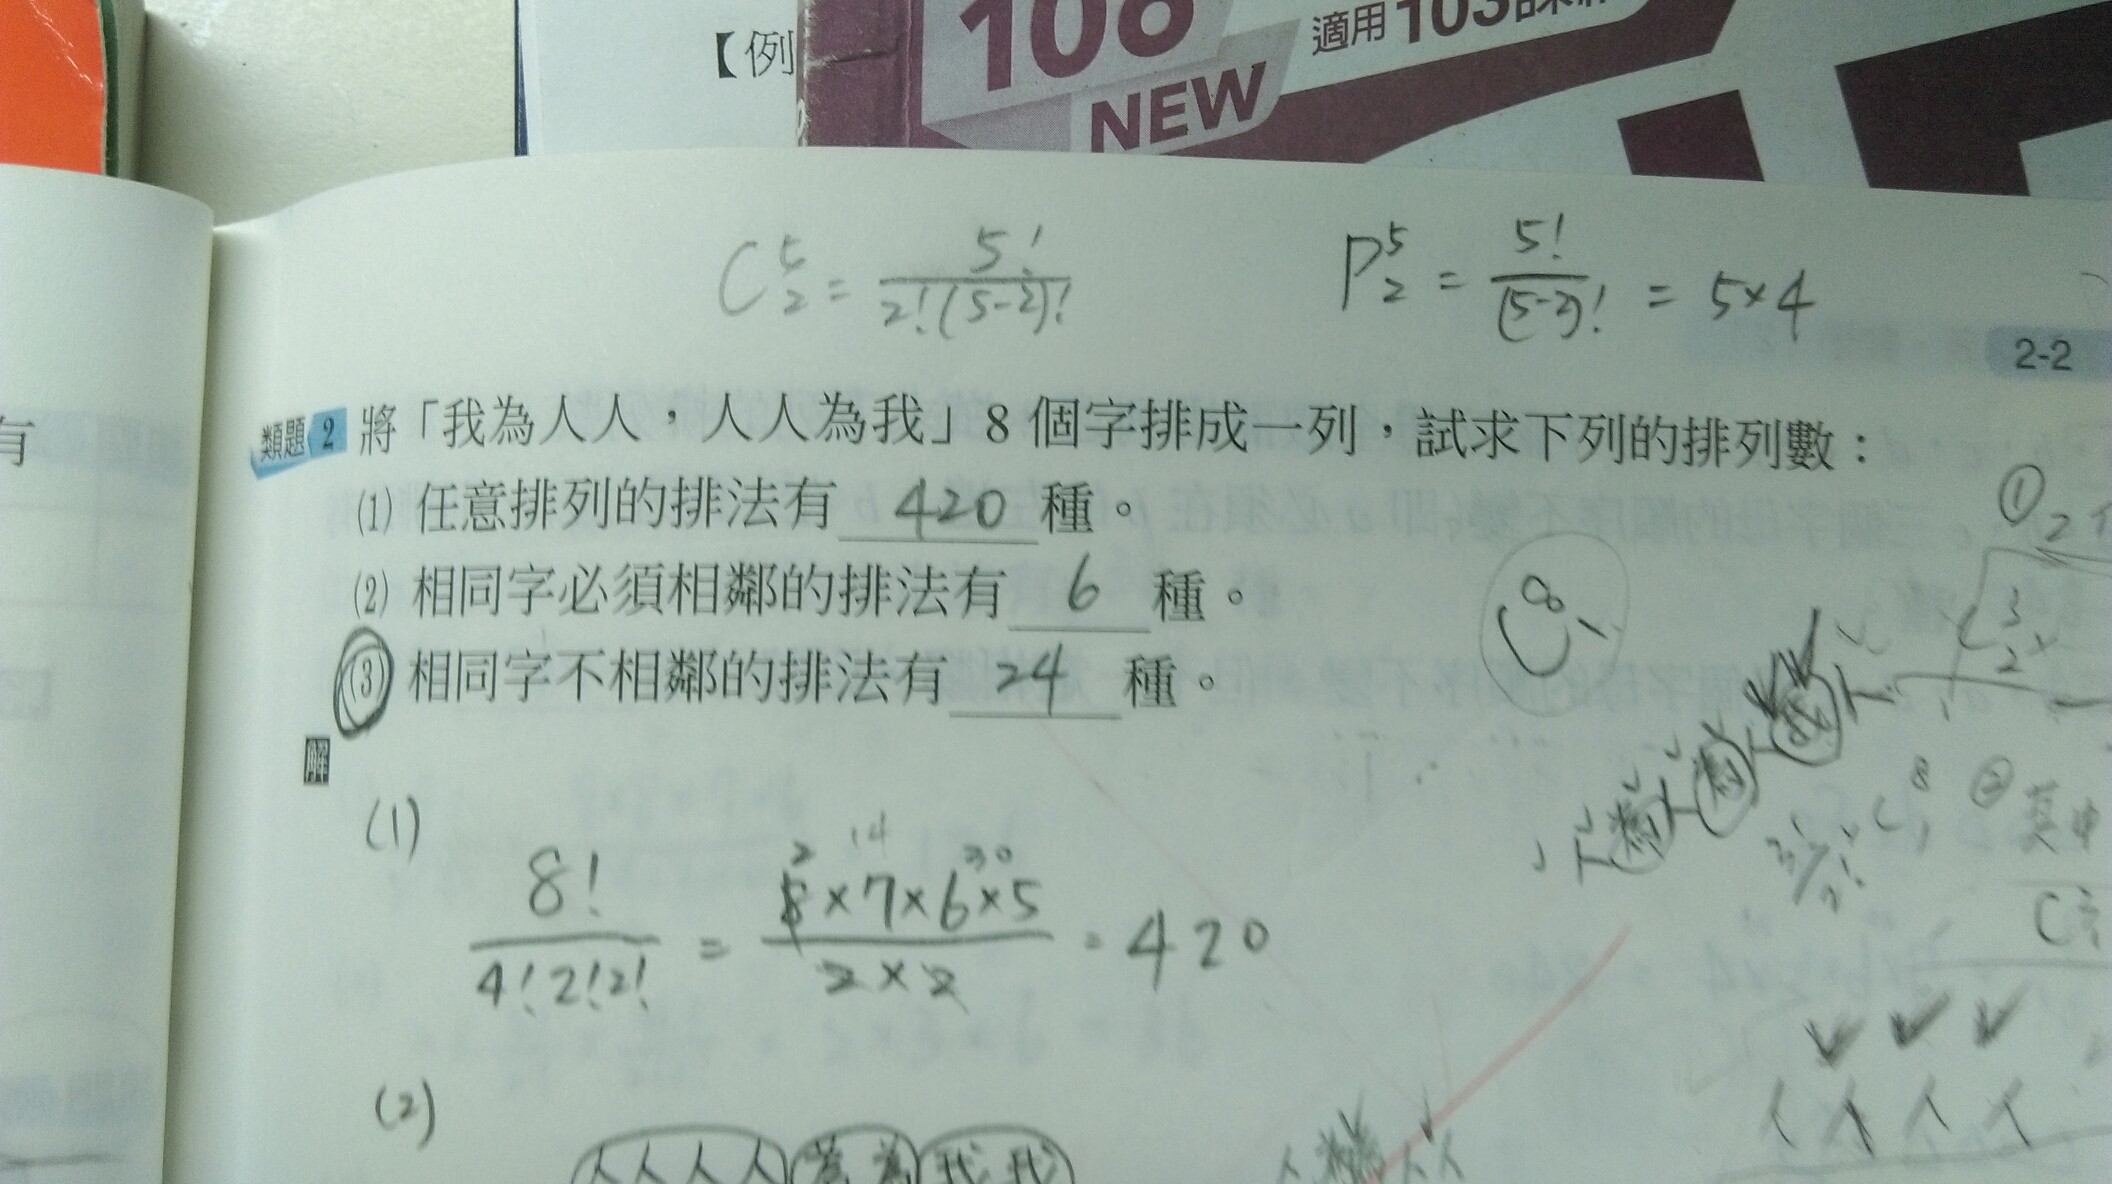 【例
106
NEW
適用103課
C⁵₂ = 5! / 2!(5-2)!
P⁵₂ = 5! / (5-2)! = 5×4
2-2
有
類題 2 將「我為人人，人人為我」8 個字排成一列，試求下列的排列數：
(1) 任意排列的排法有 420 種。
(2) 相同字必須相鄰的排法有 6 種。
(3) 相同字不相鄰的排法有 24 種。
解
(1)
8! / 4!2!2! = 8×7×6×5 / 2×2 = 420
(2)
人人人人 為為 我我
① 2
C³₂×
② 其中
人 人 人 人